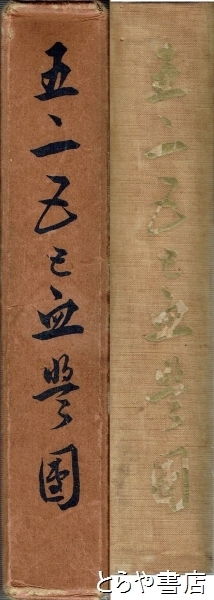 五・一五と血盟團
五・一五と血盟團
とらや書店